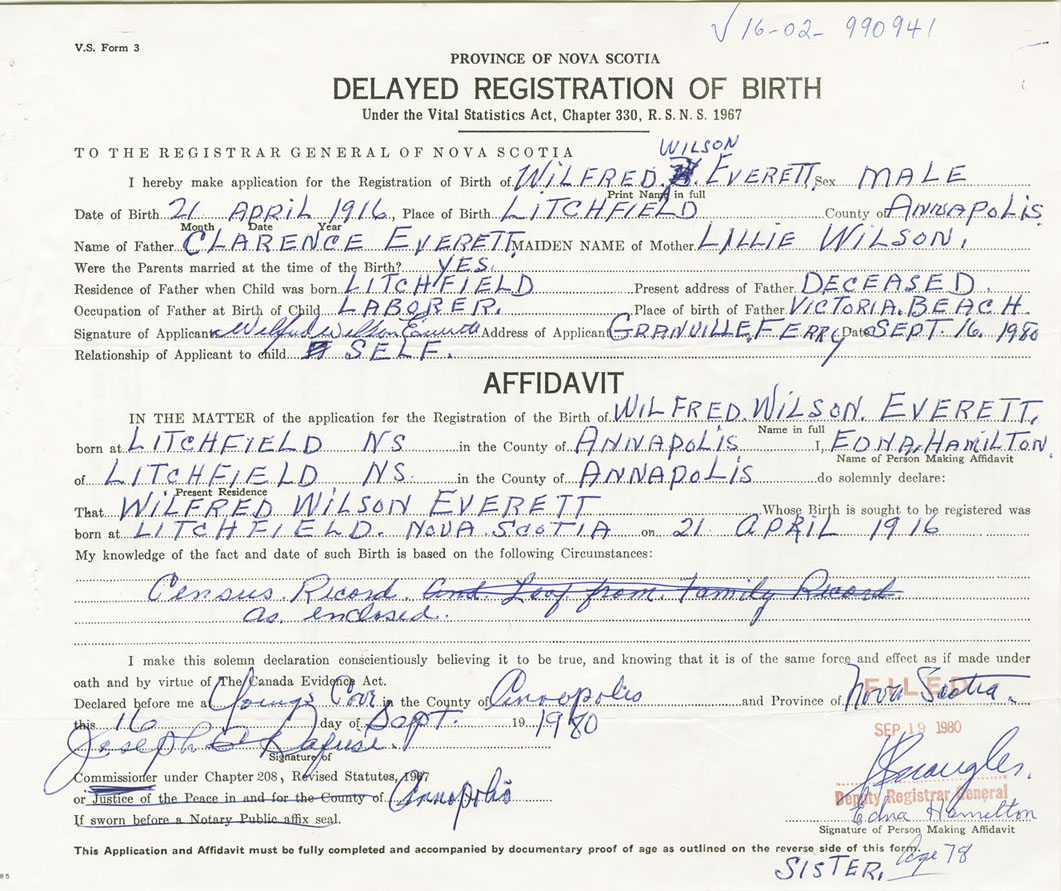 √ 16-02- 990941
V.S. Form 3
PROVINCE OF NOVA SCOTIA
DELAYED REGISTRATION OF BIRTH
Under the Vital Statistics Act, Chapter 330, R. S. N. S. 1967
TO THE REGISTRAR GENERAL OF NOVA SCOTIA
WILSON
I hereby make application for the Registration of Birth of WILFRED. EVERETT. Sex MALE
Print Name in full
Date of Birth 21 APRIL 1916, Place of Birth LITCHFIELD County of ANNAPOLIS
Month Date Year
Name of Father CLARENCE EVERETT MAIDEN NAME of Mother LILLIE WILSON.
Were the Parents married at the time of the Birth? YES.
Residence of Father when Child was born LITCHFIELD Present address of Father DECEASED.
Occupation of Father at Birth of Child LABORER. Place of birth of Father VICTORIA. BEACH.
Signature of Applicant Wilfred Wilson Everett Address of Applicant GRANVILLE. FERRY Date SEPT. 16. 1980
Relationship of Applicant to child SELF.
AFFIDAVIT
IN THE MATTER of the application for the Registration of the Birth of WILFRED. WILSON. EVERETT.
Name in full
born at LITCHFIELD NS in the County of ANNAPOLIS I, EDNA. HAMILTON.
Name of Person Making Affidavit
of LITCHFIELD NS. in the County of ANNAPOLIS do solemnly declare:
Present Residence
That WILFRED WILSON EVERETT Whose Birth is sought to be registered was
born at LITCHFIELD. NOVA. SCOTIA on 21 APRIL 1916
My knowledge of the fact and date of such Birth is based on the following Circumstances:
Census Record and Leaf from Family Record
as enclosed.
I make this solemn declaration conscientiously believing it to be true, and knowing that it is of the same force and effect as if made under
oath and by virtue of The Canada Evidence Act.
Declared before me at Youngs Cove in the County of Annapolis and Province of Nova Scotia.
FILED
this 16 day of Sept. 19 1980
SEP 19 1980
Joseph Rafuse.
Signature of
Commissioner under Chapter 208, Revised Statutes, 1967
or Justice of the Peace in and for the County of Annapolis
Deputy Registrar General
If sworn before a Notary Public affix seal.
Edna Hamilton
Signature of Person Making Affidavit
This Application and Affidavit must be fully completed and accompanied by documentary proof of age as outlined on the reverse side of this form.
SISTER. Age 78
85